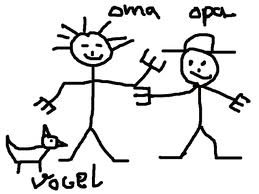 oma opa
VOGEL